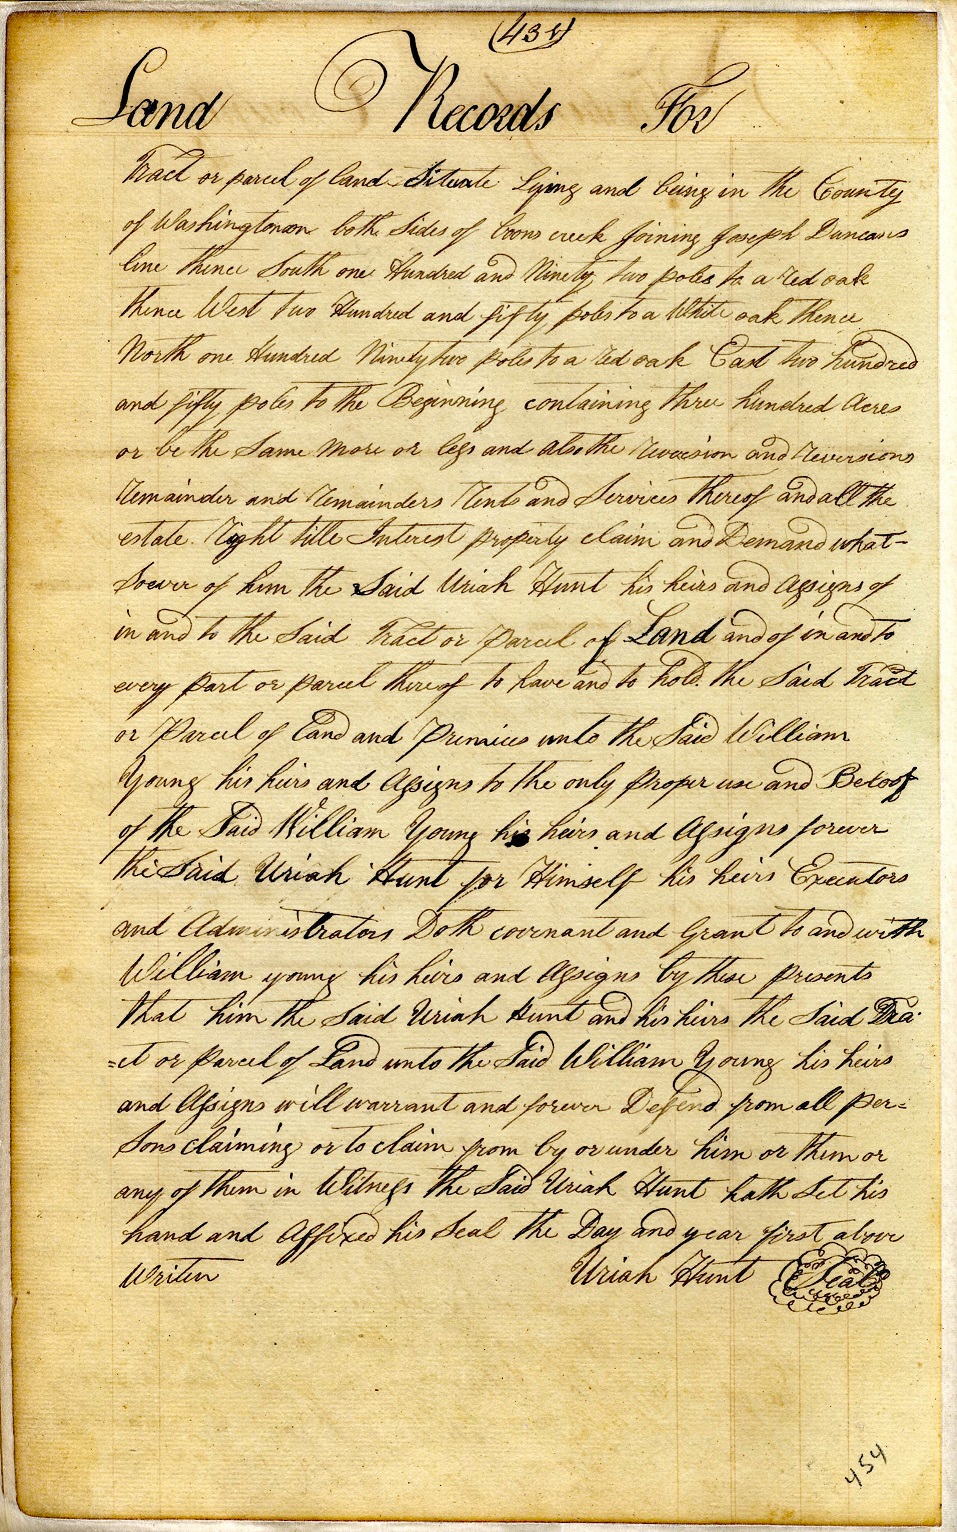 (434)
Land Records For
Tract or parcel of land Situate Lying and being in the County
of Washington on both Sides of Coons creek Joining Joseph Duncans
line thence South one Hundred and Ninety two poles to a red oak
thence West two Hundred and fifty poles to a White oak thence
North one Hundred Ninety two poles to a red oak East two hundred
and fifty poles to the Beginning containing three hundred Acres
or be the Same more or less and also the revercion and reversions
remainder and remainders rents and Services thereof and all the
estate right title Interest property claim and Demand what-
soever of him the Said Uriah Hunt his heirs and Assigns of
in and to the Said Tract or Parcel of Land and of in and to
every part or parcel thereof to have and to hold the Said Tract
or Parcel of Land and Premices unto the Said William
Young his heirs and Assigns to the only proper use and Behoof
of the Said William Young his heirs and Assigns forever
the Said Uriah Hunt for Himself his heirs Executors
and Administrators Doth covenant and Grant to and with
William young his heirs and Assigns by these presents
that him the Said Uriah Hunt and his heirs the Said Tra-
=ct or parcel of Land unto the Said William Young his heirs
and Assigns will warrant and forever Defend from all per=
Sons claiming or to claim from by or under him or them or
any of them in Witness the Said Uriah Hunt hath Set his
hand and Affixed his Seal the Day and year first above
Writen Uriah Hunt Seal
454